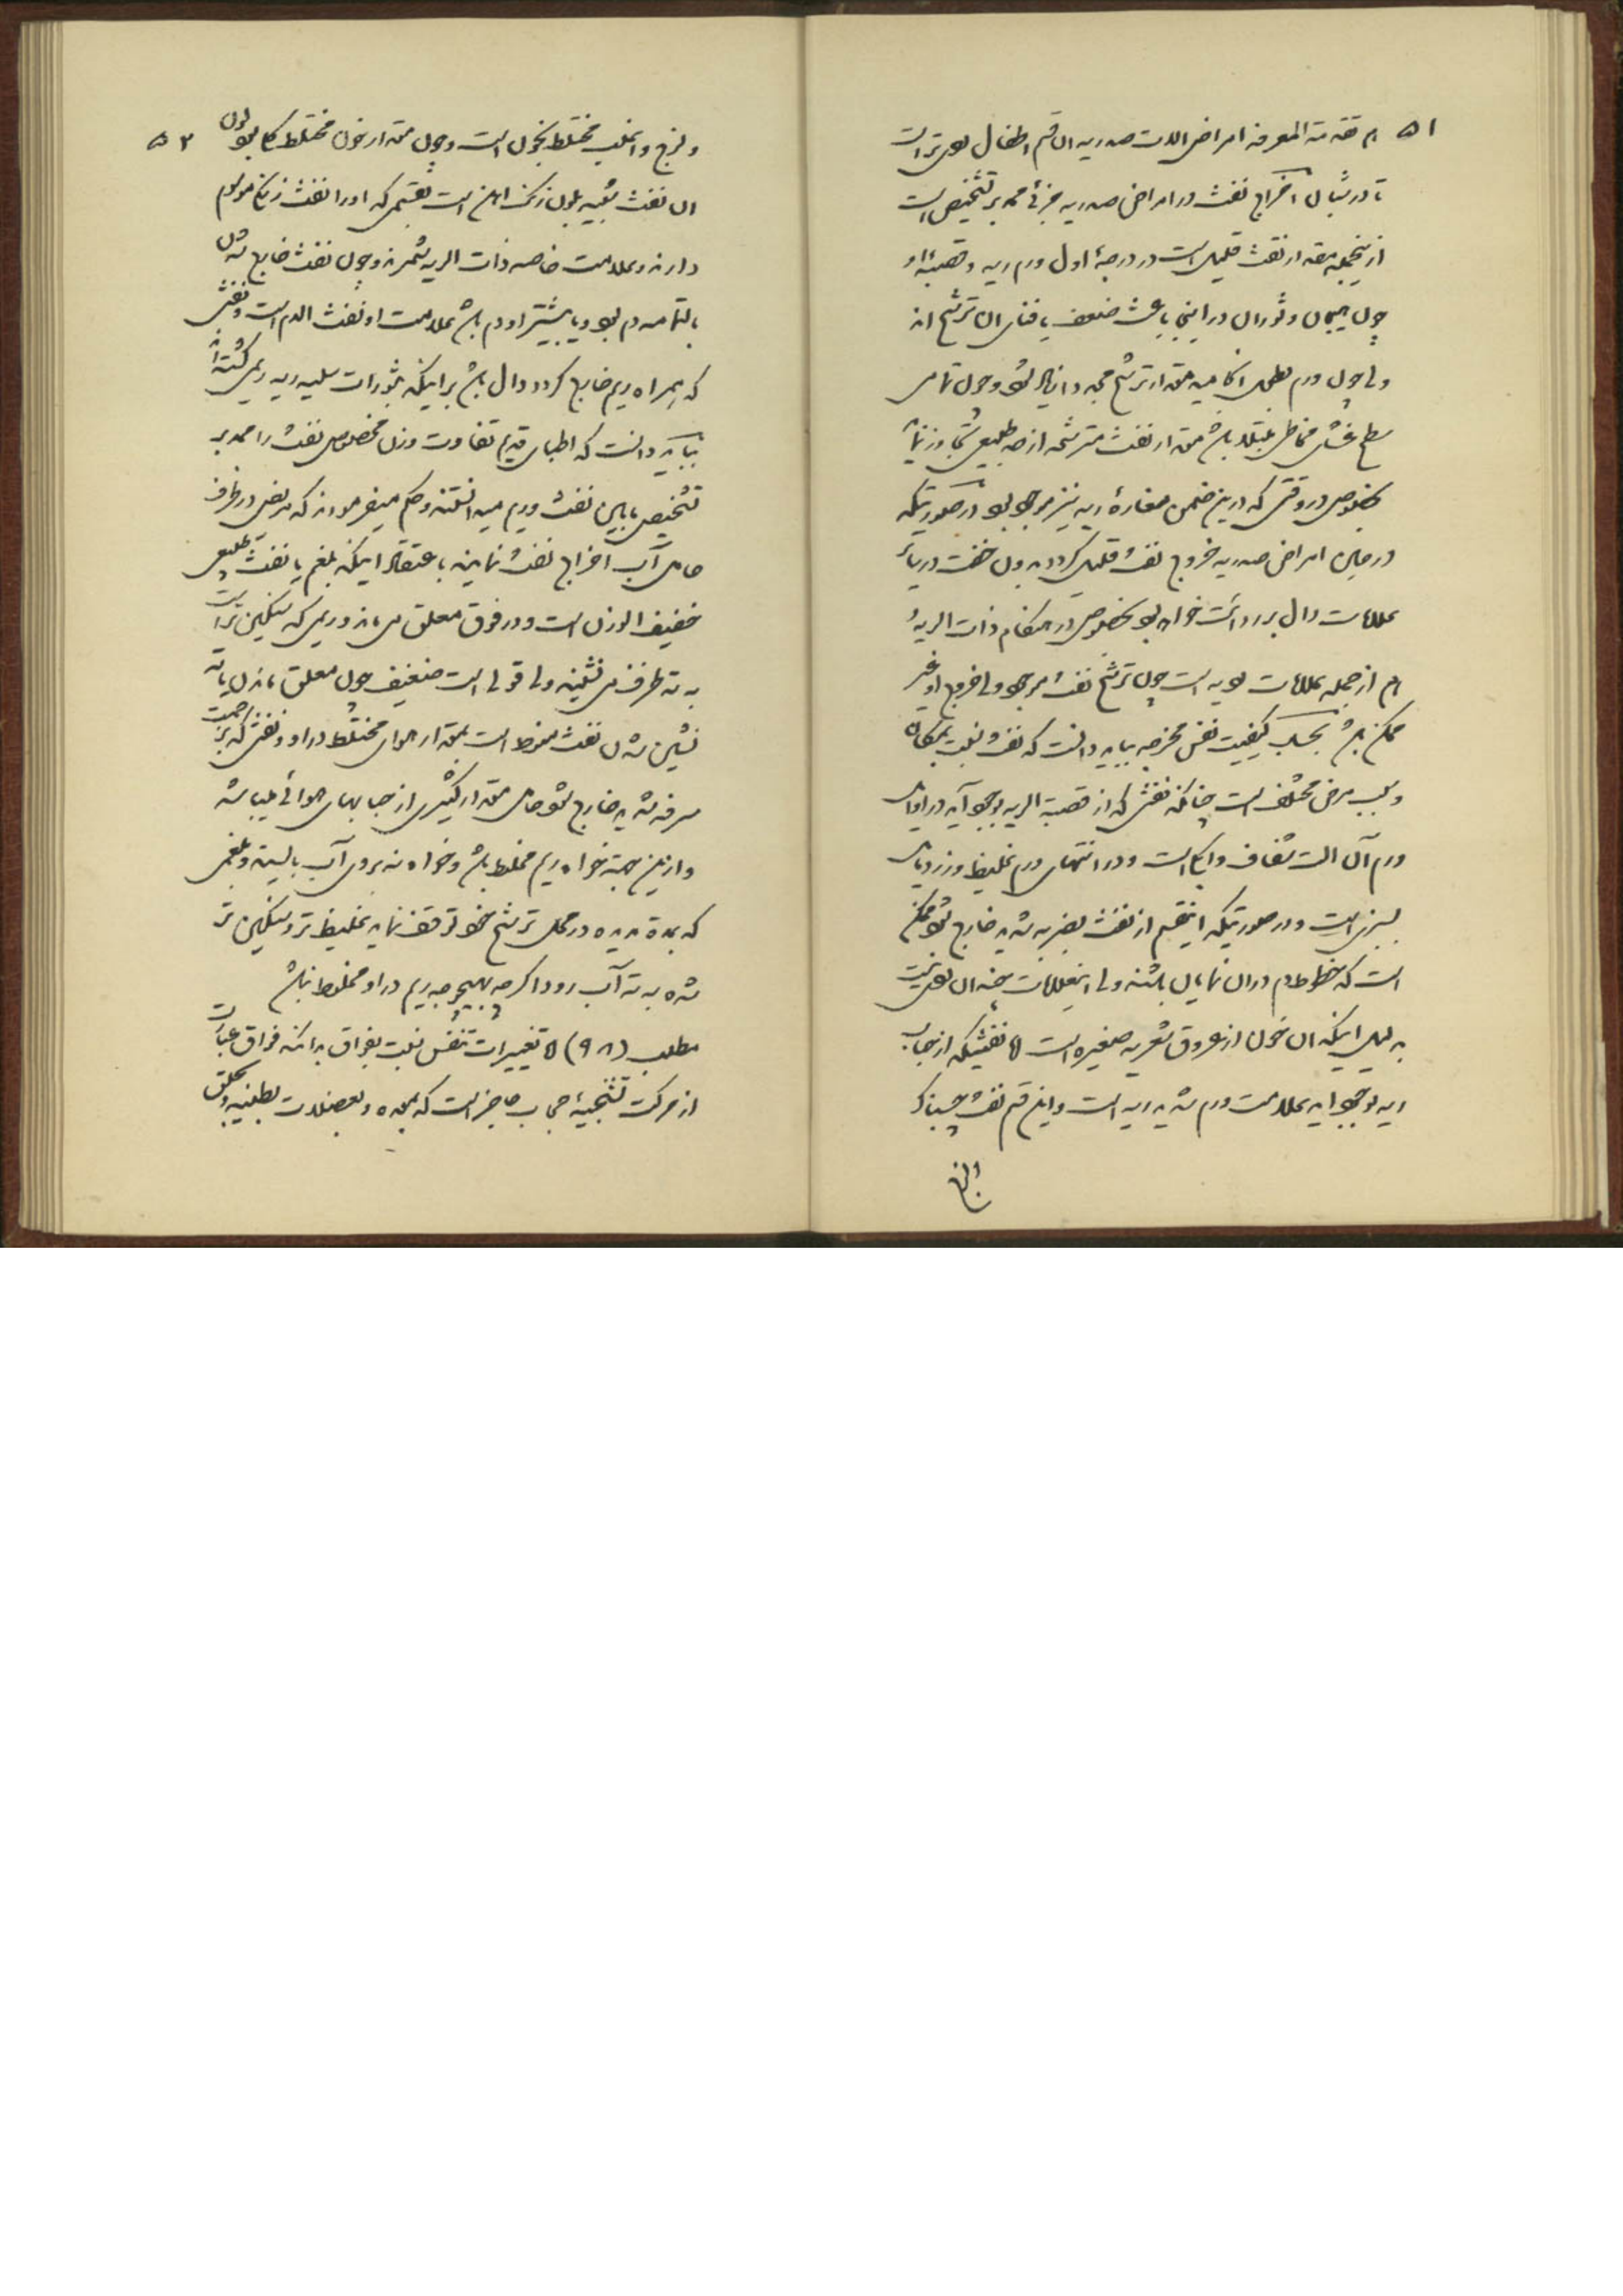 ۵۱ ام تقدمة المعرفه امراض الات صدریه ان قسم اطفال بهتر است
تا در شبان اخراج نفث در امراض صدریه جزئی ممد بر تشخیص است
از اینجمله مقدار نفث قلیل است در درجهٔ اول ورم ریه و قصبهٔ او
چون هیجان و ثوران در اینجا باعث ضعف یا فنای ان ترشح اند
ولی چون ورم بطی انجامید مقدار ترشح مجددا زیاد شود و چون تمامی
سطح غشای مخاطی مبتلا باشد مقدار نفث مترشحه از حد طبیعی تجاوز نماید
بخصوص در وقتی که در این ضمن مغارهٔ ریه نیز موجود بود در صورتیکه
در حین امراض صدریه خروج نفث قلیل گردد بدون خفت در سایر
علامات دال بر ردائت خواهد بود بخصوص در هنگام ذات الریه
ام از جمله علامات بدیه است چون ترشح نفث موجود ولی خروج او غیر
ممکن باشد بحسب کیفیت نفث مخرجه بباید دانست که نفث نسبت بمکان
و سبب مرض مختلف است چنانکه نفثی که از قصبة الریه بوجود آید در اوایل
ورم آن الت شفاف و آبکی است و در انتهای ورم غلیظ و زرد یا مایل
بسبزی است و در صورتیکه اینقسم از نفث بضربه شدید خارج شود ممکن
است که خطوط دم در ان نمایان باشند ولی اینعلامات چندان بد نیست
بدلیل اینکه ان خون از عروق شعریه صغیره است اما نفثیکه از حجاب
ریه بوجود اید علامت ورم شدید ریه است و این قسم نفث چسبناک
۵۲ ولزج و اغلب مختلط بخون است و چون مقدار خون مختلط کم بود لون
ان نفث شبیه بلون زنک اهن است بقسمی که او را نفث زنکاری موسوم
دارند و علامت خاصه ذات الریه شمرند و چون نفث خارج شده
بالتمامه دم بود و یا بیشتر او دم باشد علامت او نفث الدم است و نفثی
که بهمراه ریم خارج گردد دال باشد بر اینکه بثورات سلیه ریه ریمی گشته اند
بباید دانست که اطبای قدیم تفاوت وزن مخصوص نفث را ممد بر
تشخیص مابین نفث و ریم میدانستند و حکم میفرمودند که مریض در ظرف
حامل آب اخراج نفث نماید باعتقاد اینکه بلغم یا نفث طبیعی
خفیف الوزن است و در فوق معلق می ماند و ریمی که سنگین تر است
به ته ظرف می نشیند ولی قولی است ضعیف چون معلق ماندن یا ته
نشین شدن نفث منوط است بمقدار هوای مختلط در او و نفثی که بزحمت
سرفه شدید خارج شود حامل مقدار کثیری از حبابهای هوائی میباشد
و ازین جهة خواه ریم مخلوط باشد و خواه نه بروی آب بایستد و بلغمی
که بمدة مدیده در محل ترشح خود توقف نماید غلیظ تر و سنگین تر
شده به ته آب رود اگرچه بهیچوجه ریم در او مخلوط نباشد
مطلب (۹۸) اما تغییرات تنفس نسبت بفواق بدانکه فواق عبارت
از حرکت تشنجیهٔ حجاب حاجز است که بمعده و بعضلات بطنیه و بحلق